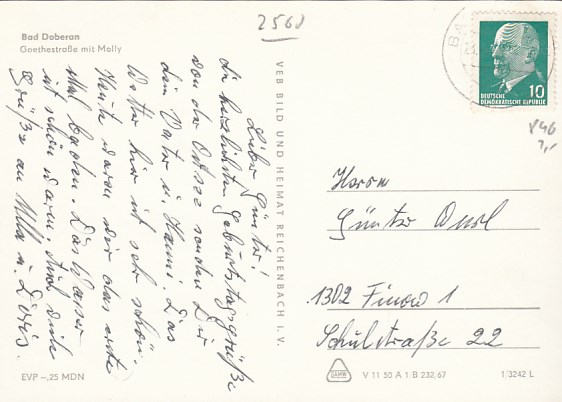 2568
Bad Doberan
Goethestraße mit Molly
Lieber Günter!
die herzlichsten Geburtstagsgrüße
von der Ostsee senden Dir
dein Vater u. Hanni. Das
Wetter hier ist sehr schön.
Heute waren wir das erste
Mal baden. Das Wasser
ist schön warm. Auch viele
Grüße an Milla u. Doris.
EVP –,25 MDN
VEB BILD UND HEIMAT REICHENBACH I. V.
BA
10
DEUTSCHE
DEMOKRATISCHE REPUBLIK
Herrn
Günter
1302 Finow 1
Schulstraße 22
V 11 50 A 1/B 232/67
1/3242 L